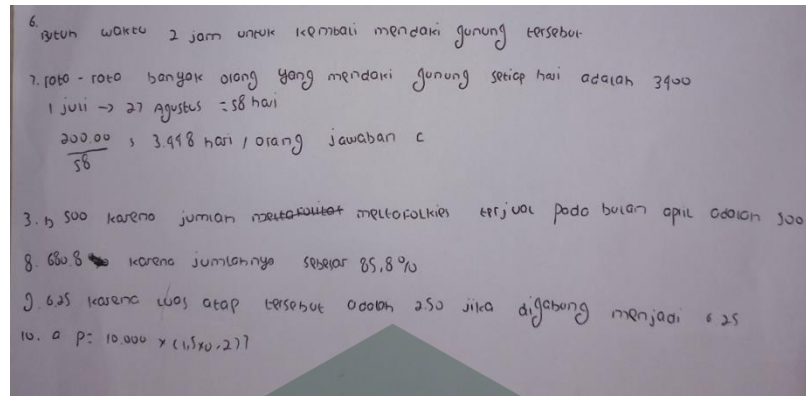 6.
Butuh waktu 2 jam untuk kembali mendaki gunung tersebut
7. rata - rata banyak orang yang mendaki gunung setiap hari adalah 3400
1 juli -> 27 Agustus = 58 hari
200.00
58
3.448 hari / orang jawaban c
3. b 500 karena jumlah meltafolkies terjual pada bulan apil adalah 500
8. 680.8 karena jumlahnya sebesar 85,8%
9. 6.25 karena luas atap tersebut adalah 250 jika digabung menjadi 6 25
10. a p= 10.000 x (1,5x0,2)7